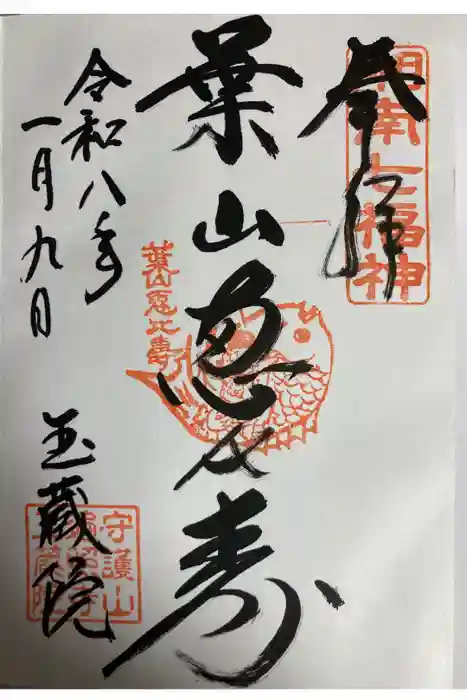 奉拝
湘南七福神
葉山惠比寿
葉山恵比寿
令和八年
一月九日
玉蔵院
守護山